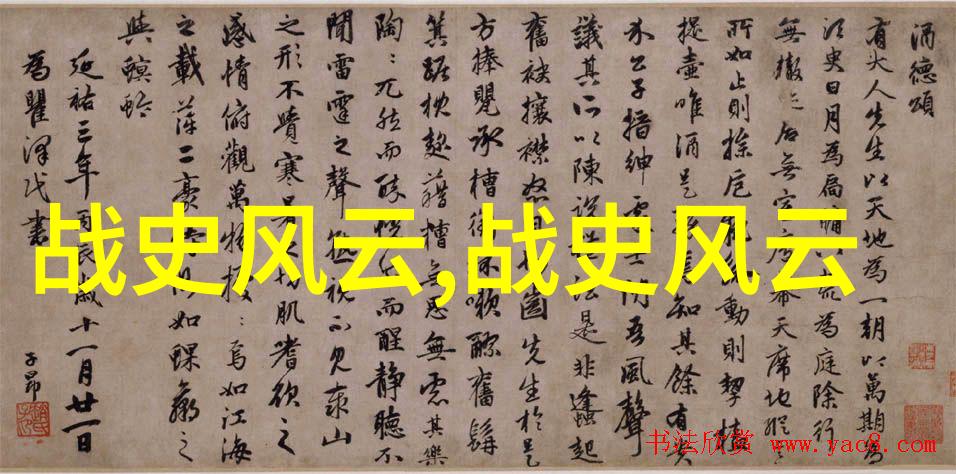 酒德頌
有大人先生以天地為一朝以萬期為
須臾日月為扃牖為庭除行
無轍迹居無室廬幕天席地縱
所如止則操卮動則挈榼
提壺唯酒是知其餘有貴
公子搢紳處士吾風聲
議其所以陳說法是非蠭起
奮袂攘襟怒先生於是
方捧甖承槽漱醪奮髯
箕踞枕麴藉糟無思無慮其樂
陶〻兀然而醉而醒靜聽不
聞雷霆之聲視不見泰山
之形不覺寒暑肌嗜欲之
感情俯觀萬物擾〻焉如江海
之載萍二豪如蜾蠃之
與螟蛉
延祐三年丙辰歲十一月廿一日
為瞿澤民書
子昂
战史风云,战史风云
书法欣赏 www.yac8.com